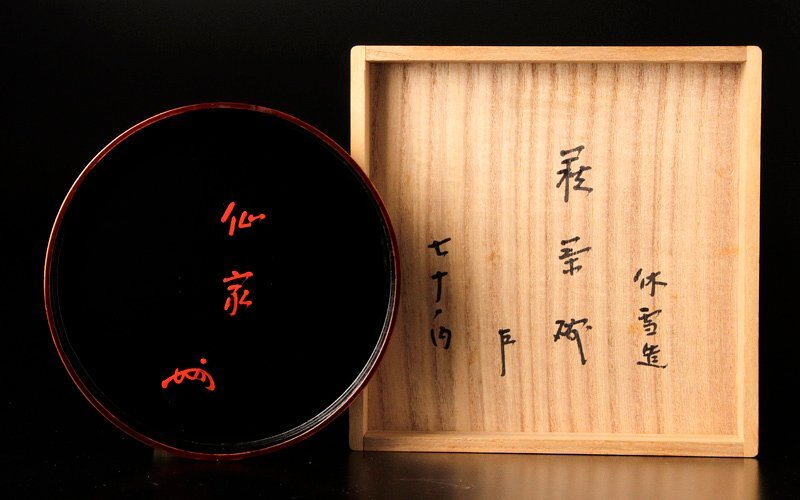 休雪造
萩茶碗
七十内
仙家